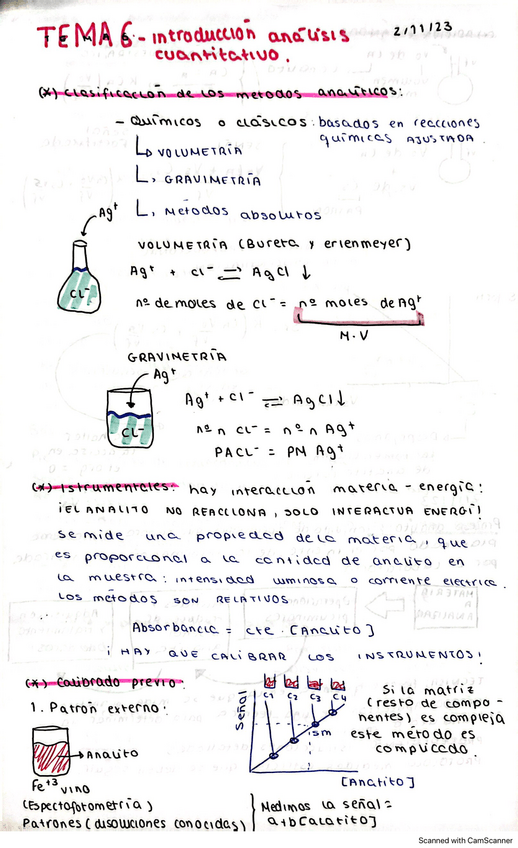 TEMA 6 - introducción análisis
cuantitativo.
2/11/23
(*) clasificación de los metodos analíticos:
- Químicos o clásicos: basados en reacciones
químicas AJUSTADA.
VOLUMETRÍA
GRAVIMETRÍA
Métodos absolutos
Ag⁺
Cl⁻
VOLUMETRÍA (Bureta y erlenmeyer)
Ag⁺ + Cl⁻ ⇌ AgCl ↓
nº de moles de Cl⁻ = nº moles de Ag⁺
M·V
GRAVIMETRÍA
Ag⁺
Cl⁻
Ag⁺ + Cl⁻ ⇌ AgCl↓
nº n Cl⁻ = nº n Ag⁺
PACL⁻ = PM Ag⁺
(*) Istrumentales: hay interacción materia - energía!
¡EL ANALITO NO REACCIONA, SOLO INTERACTUA ENERGÍ!
Se mide una propiedad de la materia, que
es proporcional a la cantidad de analito en
la muestra: intensidad luminosa o corriente electrica.
LOS MÉTODOS SON RELATIVOS
Absorbancia = cte. [Analito]
¡HAY QUE CALIBRAR LOS INSTRUMENTOS!
(*) Calibrado previo:
1. Patrón externo:
Analito
Fe⁺³ vino
(Espectofotometría)
Patrones (disoluciones conocidas)
C1 C2 C3 C4
Señal
ism
[Analito]
Medimos la señal =
a+b[Alatito]
Si la matriz
(resto de compo-
nentes) es compleja
este método es
complicado.
Scanned with CamScanner